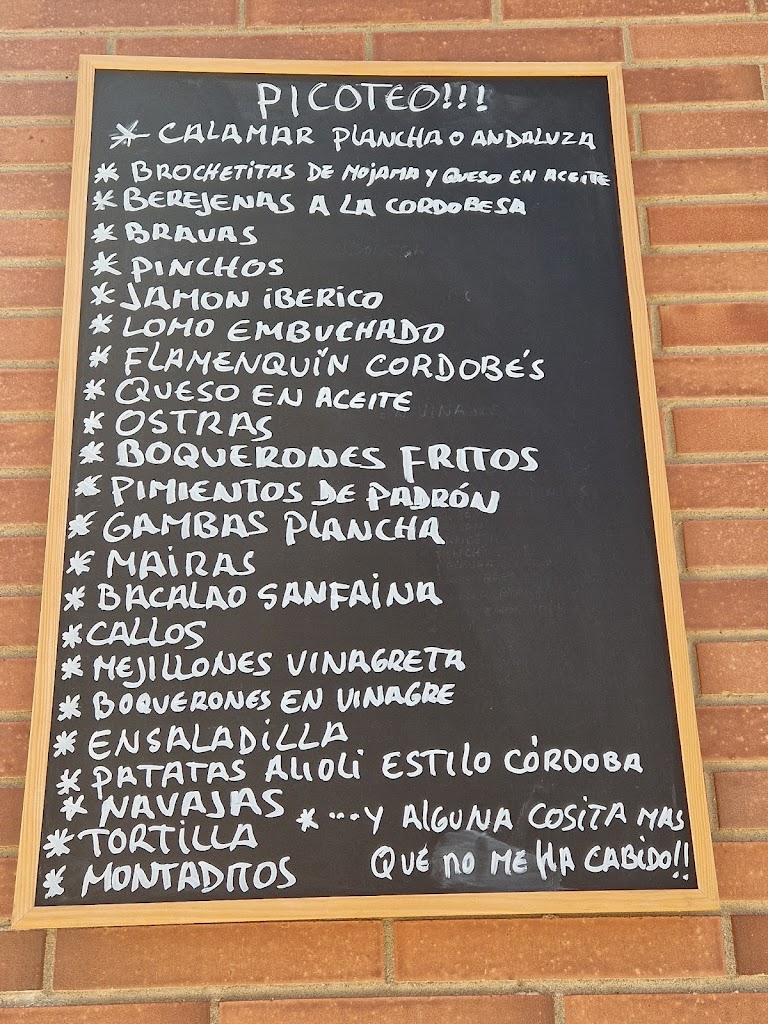 PICOTEO!!!
* CALAMAR PLANCHA O ANDALUZA
* BROCHETITAS DE MOJAMA Y QUESO EN ACEITE
* BEREJENAS A LA CORDOBESA
* BRAVAS
* PINCHOS
* JAMON iBERiCO
* LOMO EMBUCHADO
* FLAMENQUÍN CORDOBÉS
* QUESO EN ACEITE
* OSTRAS
* BOQUERONES FRITOS
* PIMIENTOS DE PADRÓN
* GAMBAS PLANCHA
* MAIRAS
* BACALAO SANFAINA
* CALLOS
* MEJILLONES VINAGRETA
* BOQUERONES EN VINAGRE
* ENSALADiLLA
* PATATAS ALIOLI ESTILO CÓRDOBA
* NAVAJAS
* TORTILLA
* MONTADITOS
* ...Y ALGUNA COSITA MAS
QUÉ NO ME HA CABIDO!!